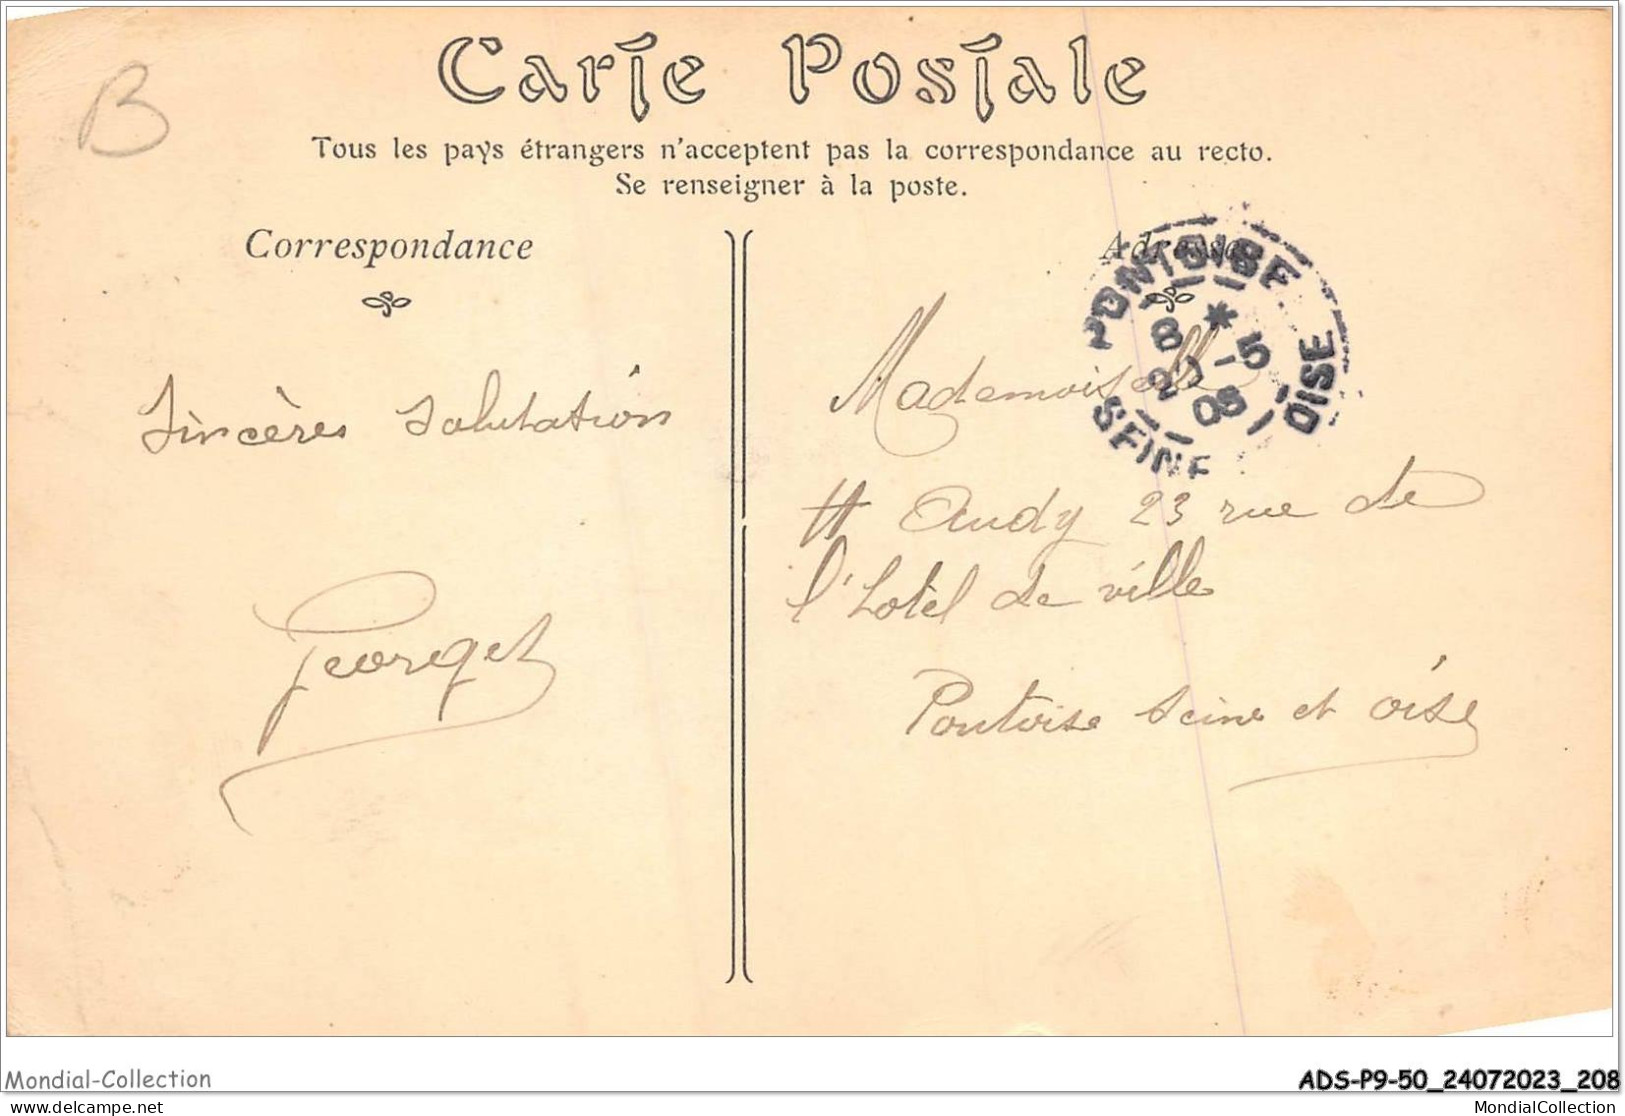 B
Carte Postale
Tous les pays étrangers n'acceptent pas la correspondance au recto.
Se renseigner à la poste.
Correspondance
Adresse
PONTOISE
8 * 5
-5
05
SEINE
OISE
Sincères Salutation
Georget
Mademoiselle
H Audy 23 rue de
l'hotel de ville
Pontoise Seine et oise
Mondial-Collection
ADS-P9-50_24072023_208
www.delcampe.net
MondialCollection